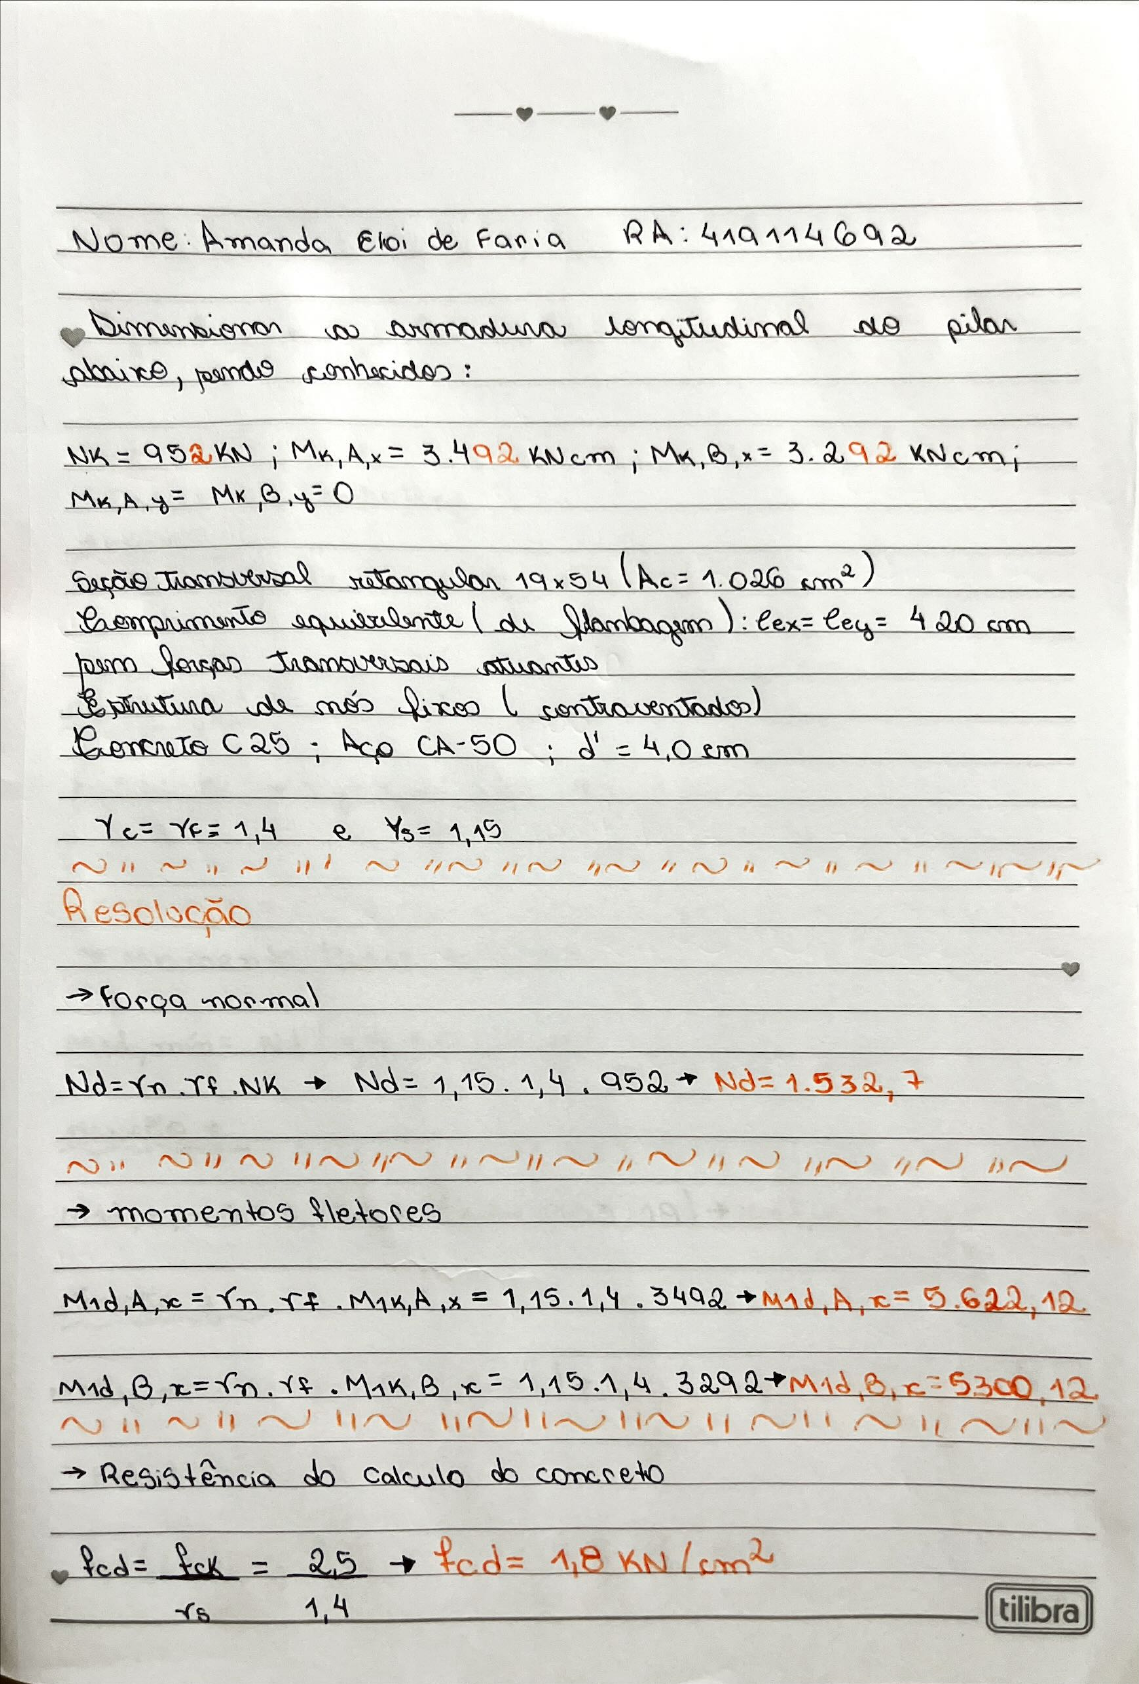 Nome: Amanda Eloi de Faria RA: 419114692
Dimensionar a armadura longitudinal do pilar
abaixo, sendo conhecidos:
NK = 952 KN ; MK,A,x = 3.492 KNcm ; MK,B,x = 3.292 KNcm;
MK,A,y = MK,B,y = 0
Seção Transversal retangular 19x54 (Ac = 1.026 cm²)
Comprimento equivalente (de flambagem): lex = ley = 420 cm
sem forças transversais atuantes
Estrutura de nós fixos (contraventados)
Concreto C25 ; Aço CA-50 ; d' = 4,0 cm
γc = γf = 1,4 e γs = 1,15
Resolução
→ Força normal
Nd = γn . γf . NK → Nd = 1,15 . 1,4 . 952 → Nd = 1.532,7
→ momentos fletores
M1d,A,x = γn . γf . M1K,A,x = 1,15 . 1,4 . 3492 → M1d,A,x = 5.622,12
M1d,B,x = γn . γf . M1K,B,x = 1,15 . 1,4 . 3292 → M1d,B,x = 5300,12
→ Resistência do calculo do concreto
fcd = fcK = 2,5 → fcd = 1,8 KN/cm²
γs 1,4
tilibra